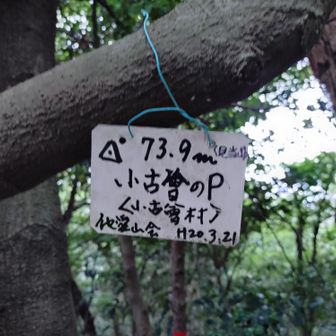 △ 73.9m
小古曽のP
<小古曽村>
山会 H20.3.21